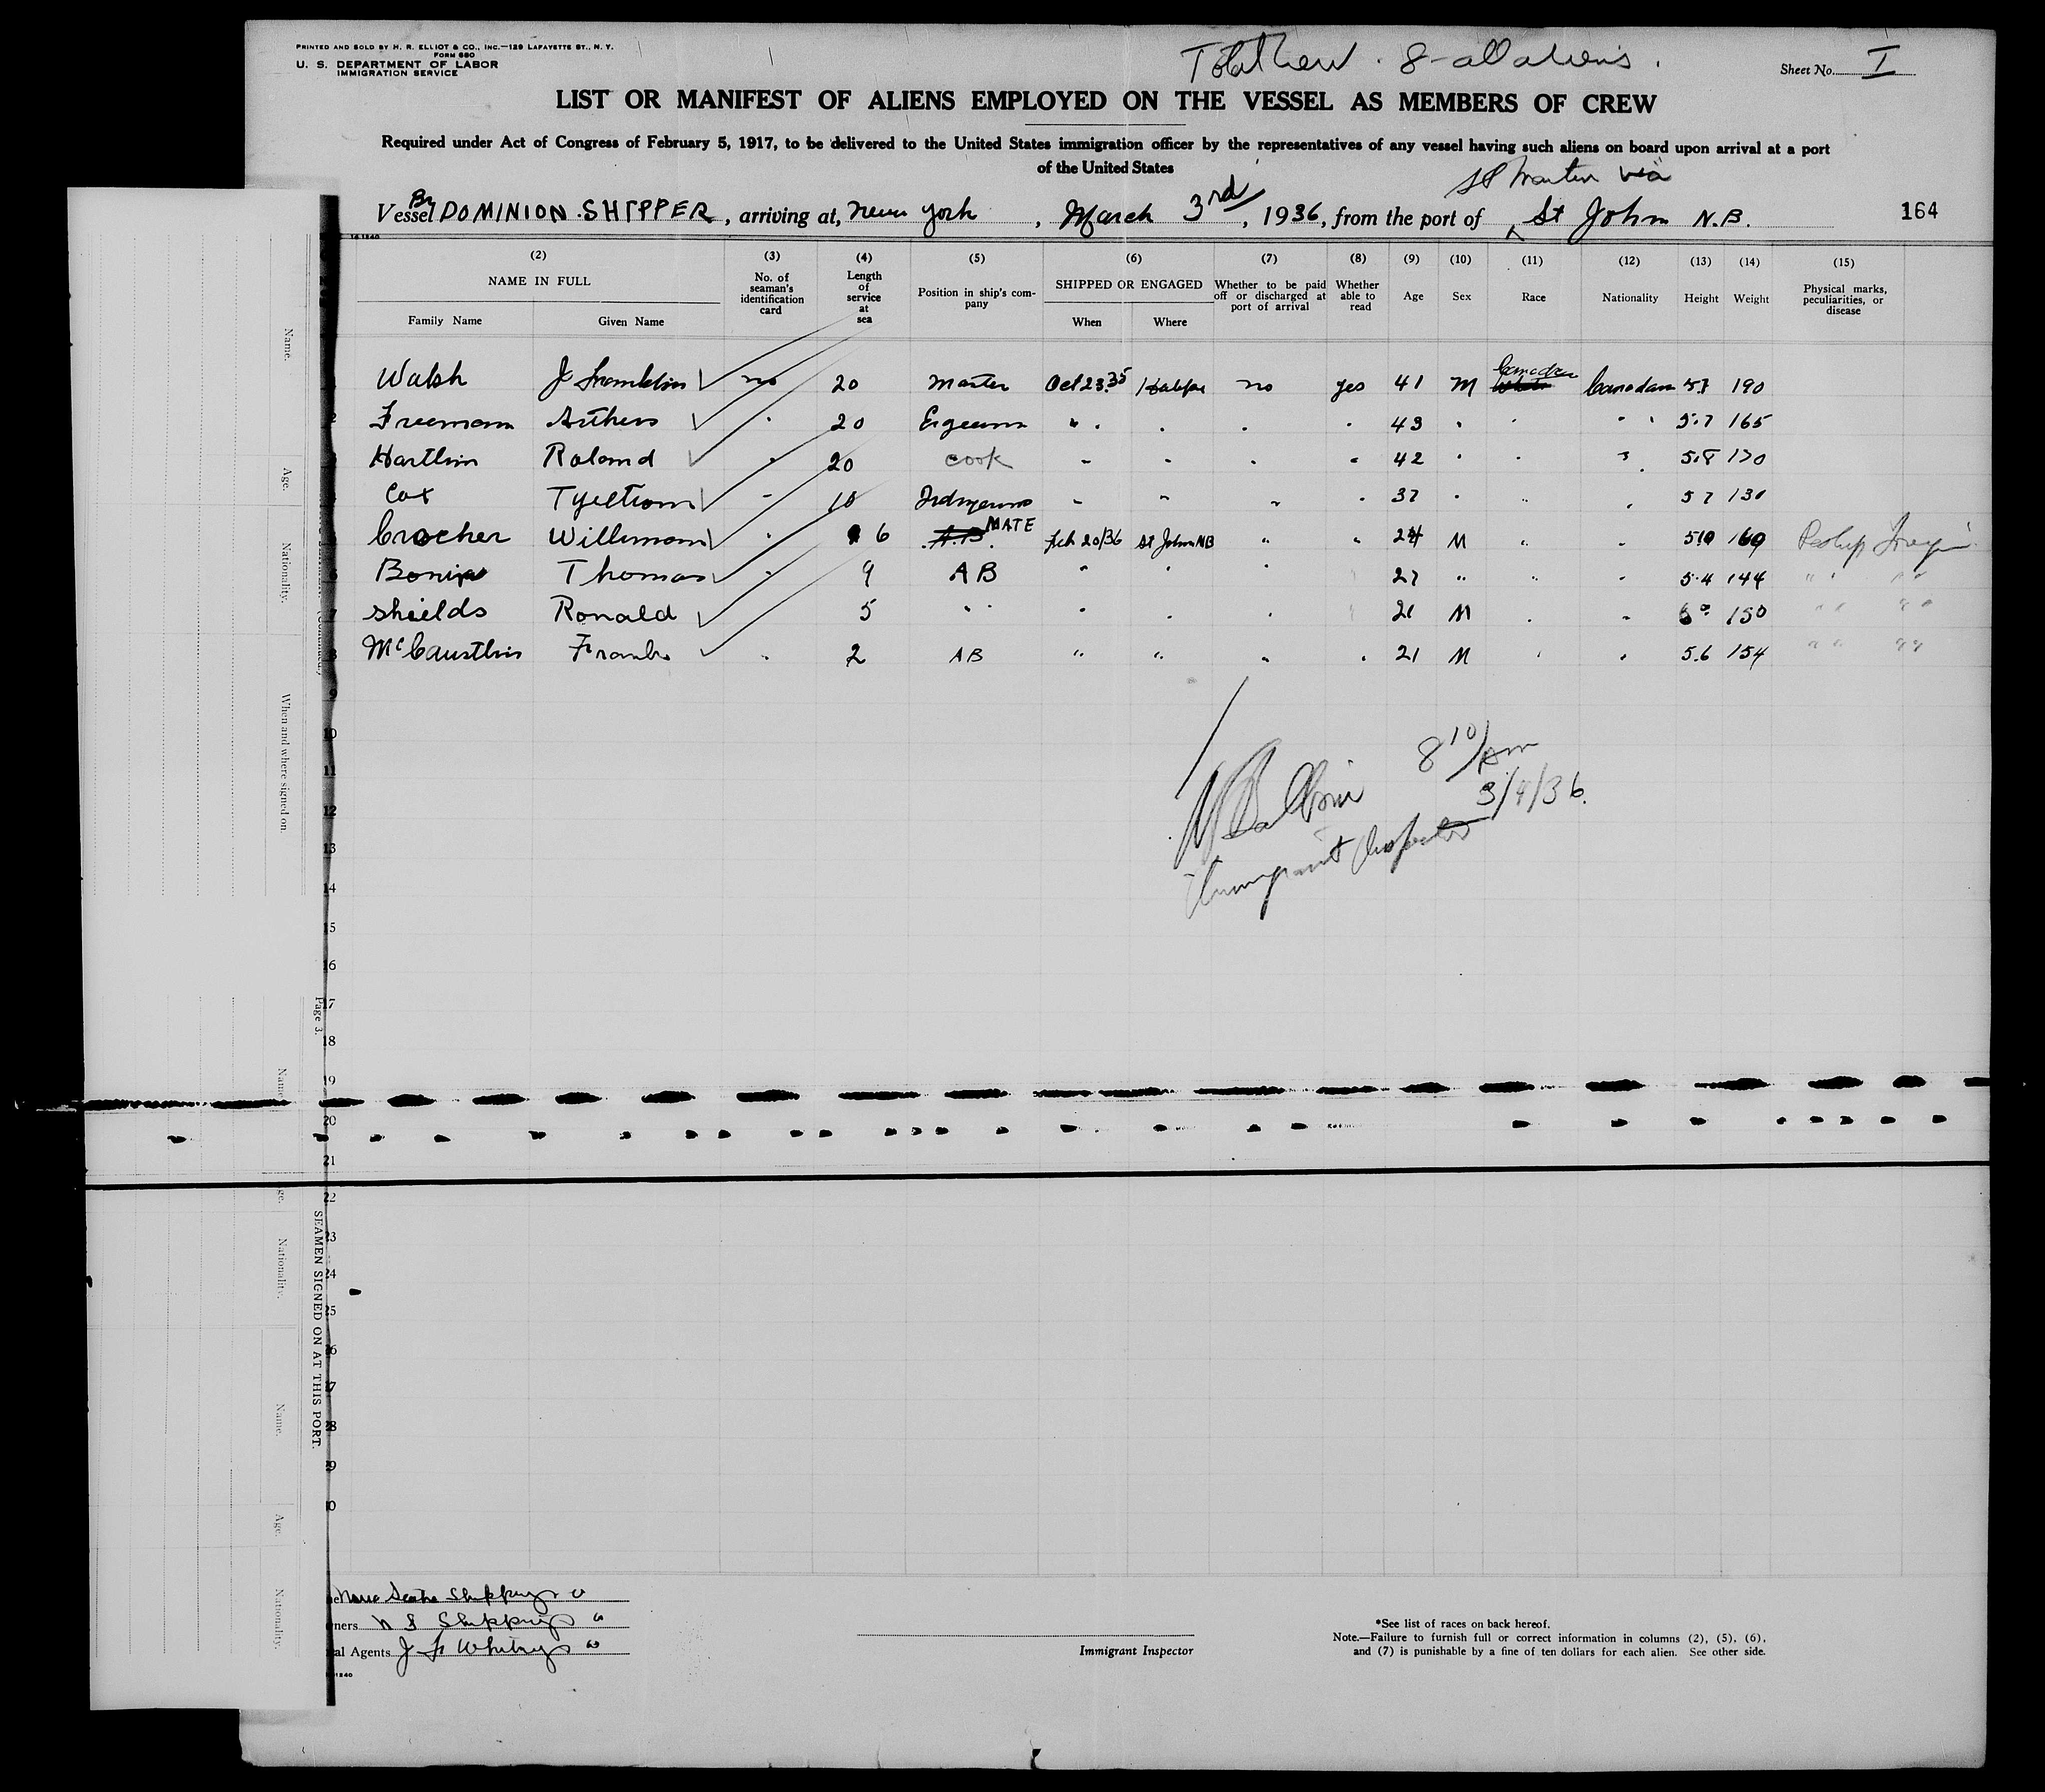 PRINTED AND SOLD BY H. R. ELLIOT & CO., INC.—129 LAFAYETTE ST., N. Y.
FORM 680
U. S. DEPARTMENT OF LABOR
IMMIGRATION SERVICE
Total Crew . 8 - all aliens .
Sheet No. I
LIST OR MANIFEST OF ALIENS EMPLOYED ON THE VESSEL AS MEMBERS OF CREW
Required under Act of Congress of February 5, 1917, to be delivered to the United States immigration officer by the representatives of any vessel having such aliens on board upon arrival at a port
of the United States
St Martin via
Vessel Br DOMINION SHIPPER, arriving at, New York, March 3rd, 1936, from the port of St John N.B. 164
(2) (3) (4) (5) (6) (7) (8) (9) (10) (11) (12) (13) (14) (15)
NAME IN FULL No. of seaman's identification card Length of service at sea Position in ship's company SHIPPED OR ENGAGED Whether to be paid off or discharged at port of arrival Whether able to read Age Sex Race Nationality Height Weight Physical marks, peculiarities, or disease
Family Name Given Name When Where
Walsh J Franklin no 20 Master Oct 23.35 Halifax no yes 41 M Canadian Canadian 5.7 190
Freeman 20 43 5.7 165
Roland 20 cook 42 5.8
Cox 10 37 5 7 130
Crocher William 6 A.B. MATE Feb 20/36 St John NB 24 M 5 10 160
Thomas 9 AB 27 5.4 144
Shields Ronald 5 21 M 6 0 150
Frank 2 AB 21 M 5.6 154
9
10
11
12
13
14
15
16
17
18
19
20
21
22
23
24
25
8 10/AM
3/4/36.
Immigrant Inspector
Name.
Age.
Nationality.
When and where signed on.
Page 3.
SEAMEN SIGNED ON AT THIS PORT.
Nationality.
Name.
Age.
Nationality.
Nova Scotia Shipping
N S Shipping
Agents J F Whitney
Immigrant Inspector
*See list of races on back hereof.
Note.—Failure to furnish full or correct information in columns (2), (5), (6),
and (7) is punishable by a fine of ten dollars for each alien. See other side.